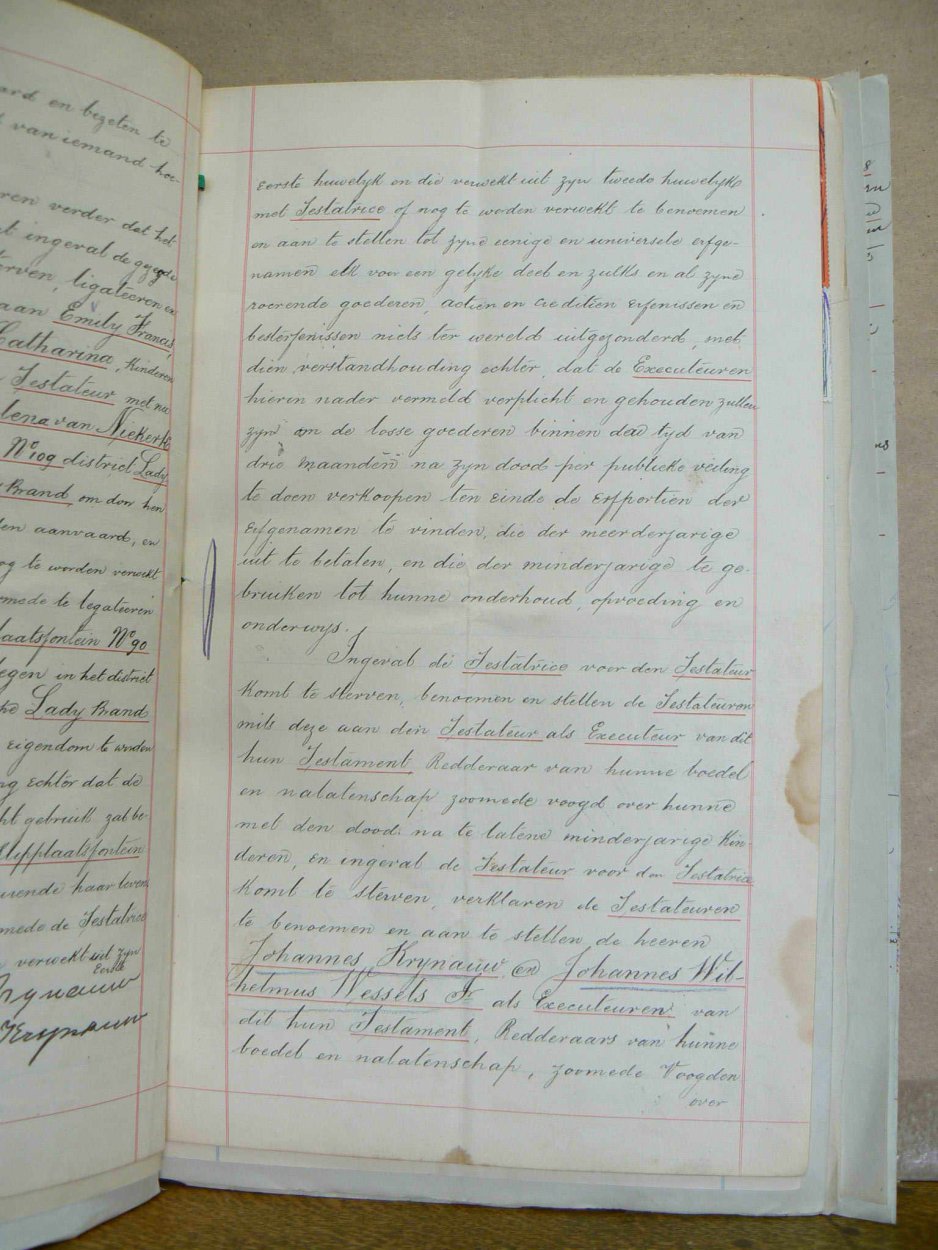 ard en bezeten te
van iemand hee-
ren verder dat het
ingeval de gezegde
sterven, ligateeren en
aan Emily Francis,
Catharina, Kinderen
Testateur met nu
lena van Niekerk
No 109 district Lady
Brand, om door hen
den aanvaard, en
og te worden verwekt
mede te legateeren
laatsfontein No 90
legen in het district
Lady Brand
eigendom te worden
ng echter dat de
cht gebruik zal be-
Klipplaatsfontein
urende haar leven
mede de Testatrice
verwekt uit zyn
Eerste
Krynauw
Krynauw
eerste huwelyk en die verwekt uit zyn tweede huwelyk
met Testatrice of nog te worden verwekt te benoemen
en aan te stellen tot zyne eenige en universele erfge-
namen elk voor een gelyke deel en zulks en al zyne
roerende goederen, actien en creditien erfenissen en
besterfenissen niets ter wereld uitgezonderd, met
dien verstandhouding echter, dat de Executeuren
hierin nader vermeld verplicht en gehouden zullen
zyn om de losse goederen binnen den tyd van
drie maanden na zyn dood per publieke veiling
te doen verkoopen ten einde de erfportien der
erfgenamen te vinden, die der meerderjarige
uit te betalen, en die der minderjarige te ge-
bruiken tot hunne onderhoud, opvoeding en
onderwys.
Ingeval de Testatrice voor den Testateur
komt te sterven, benoemen en stellen de Testateuren
mits deze aan den Testateur als Executeur van dit
hun Testament Redderaar van hunne boedel
en nalatenschap zoomede voogd over hunne
met den dood na te latene minderjarige kin
deren, en ingeval de Testateur voor den Testatrice
komt te sterven, verklaren de Testateuren
te benoemen en aan te stellen de heeren
Johannes Krynauw, en Johannes Wil-
helmus Wessels Jr als Executeuren van
dit hun Testament, Redderaars van hunne
boedel en nalatenschap, zoomede Voogden
over